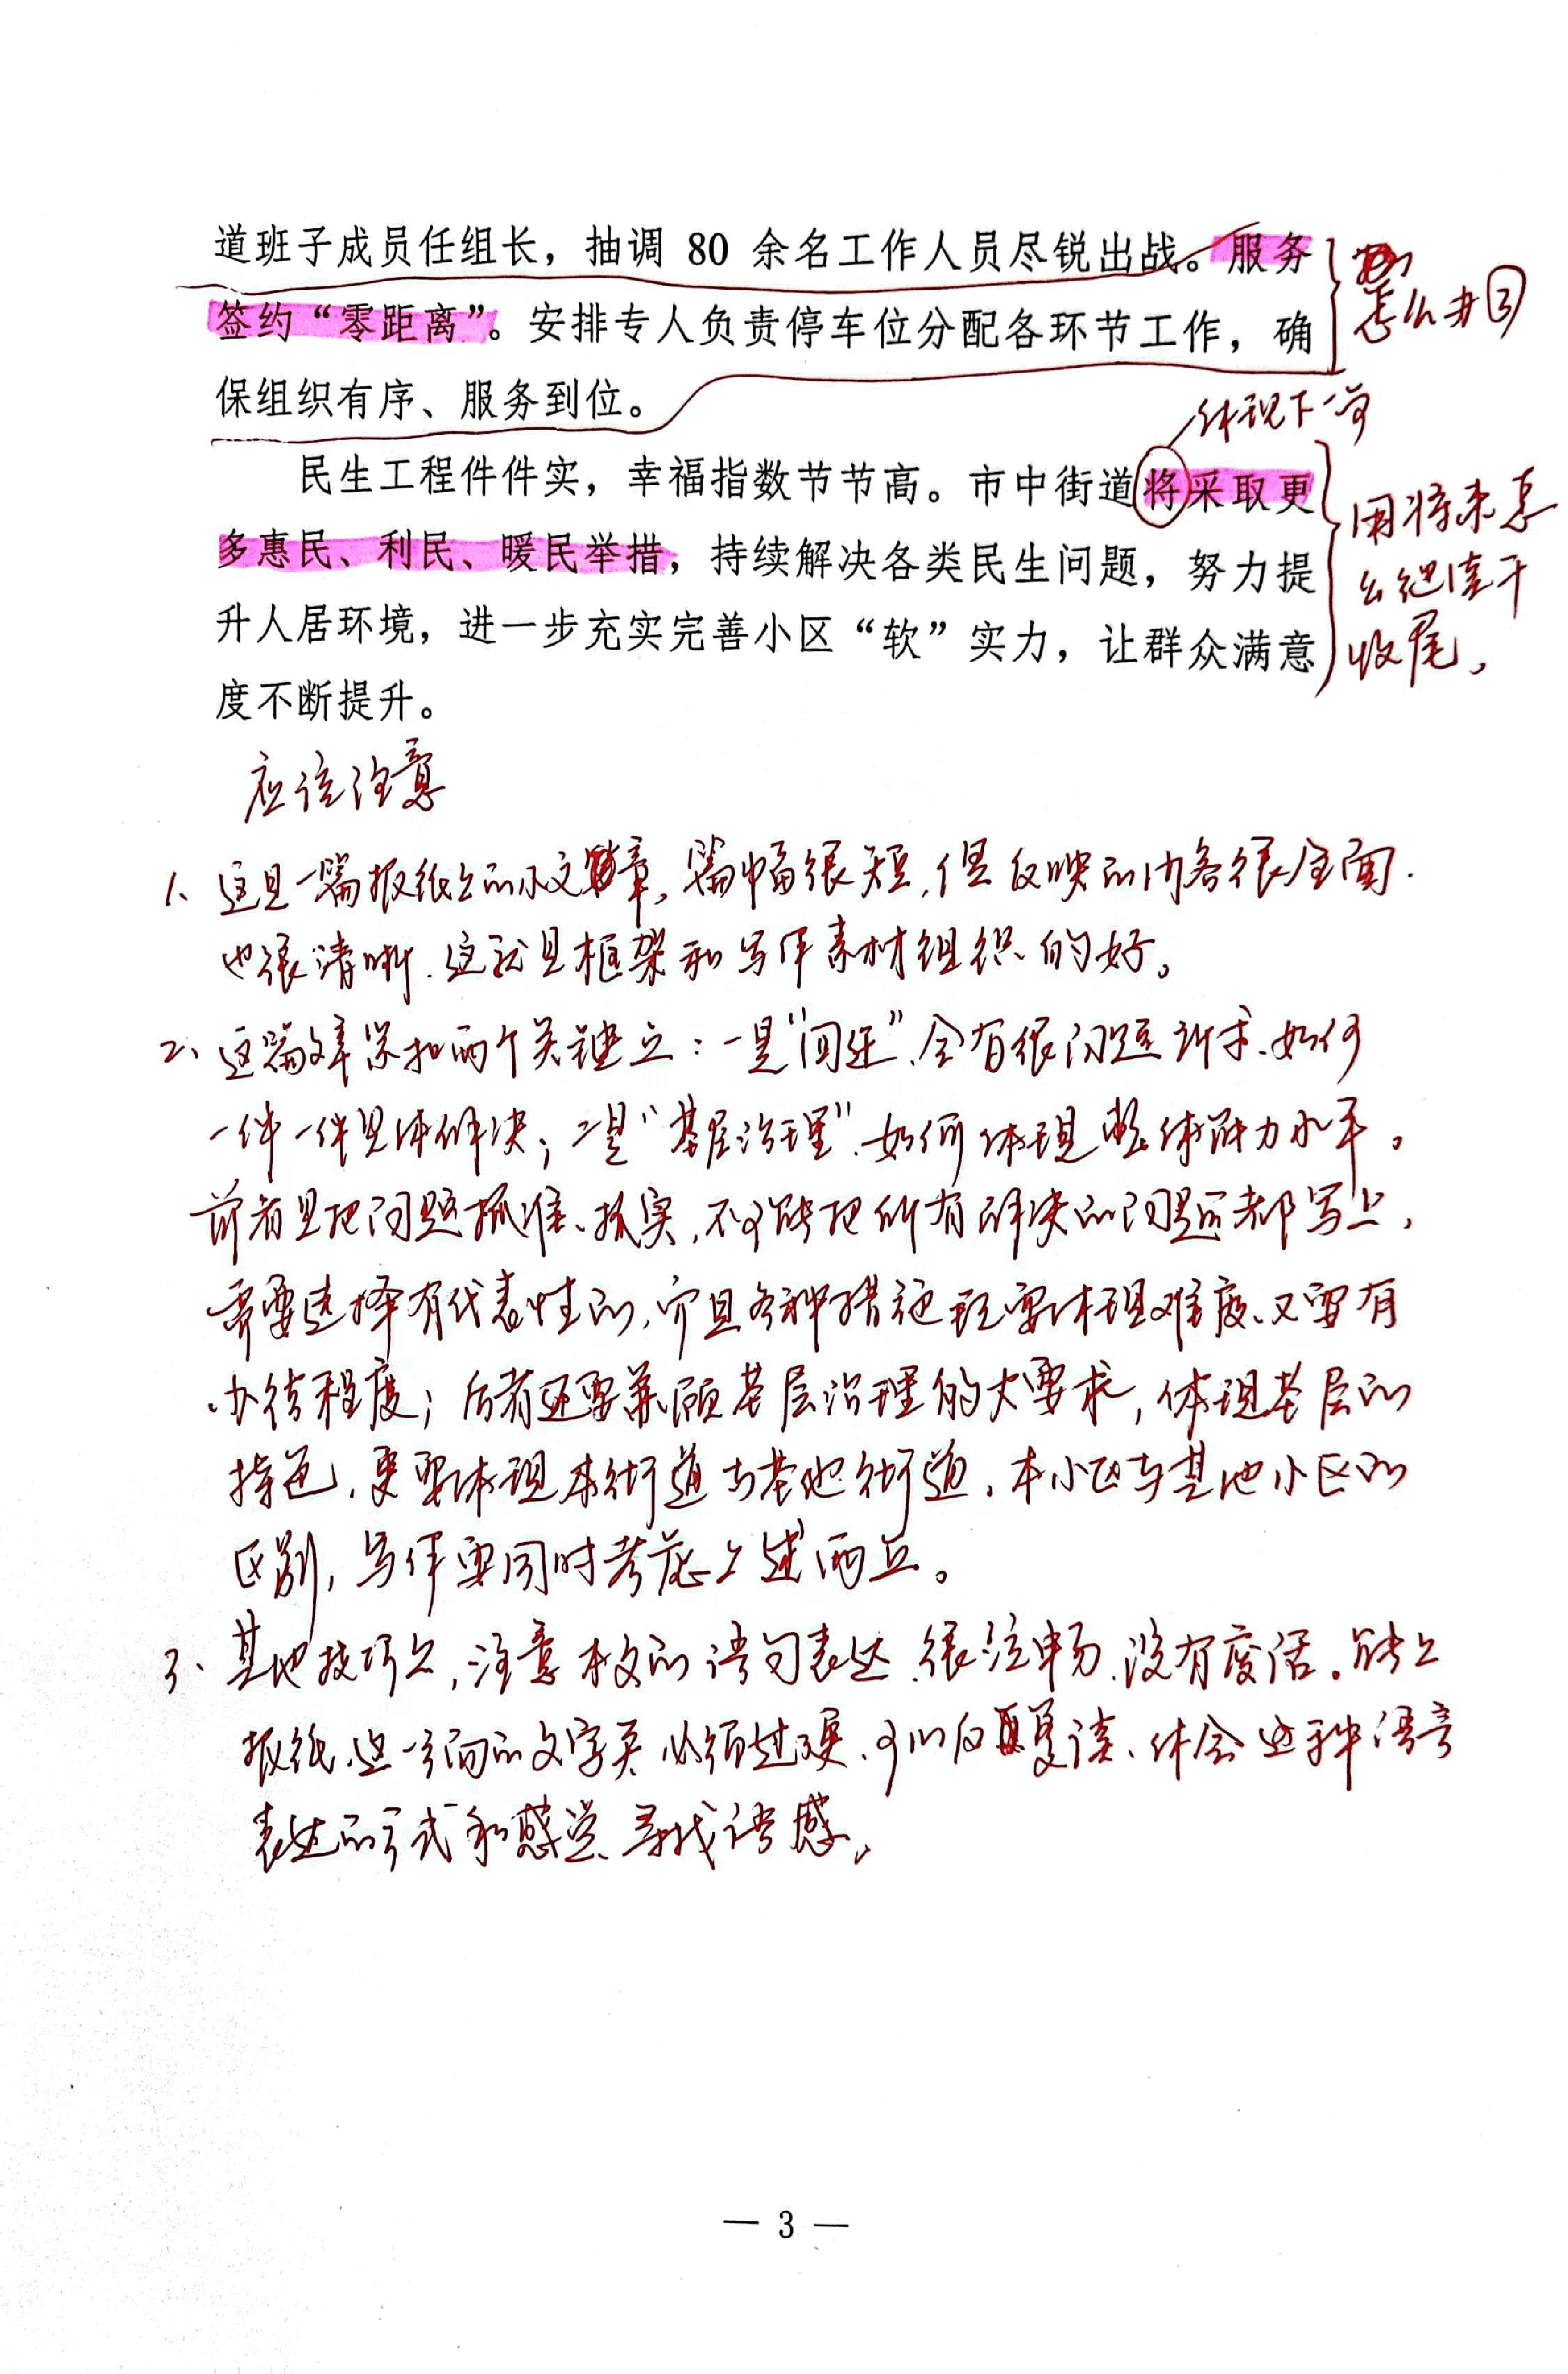 道班子成员任组长，抽调 80 余名工作人员尽锐出战。服务
签约“零距离”。安排专人负责停车位分配各环节工作，确
保组织有序、服务到位。
怎么办③
体现下一步
民生工程件件实，幸福指数节节高。市中街道将采取更
多惠民、利民、暖民举措，持续解决各类民生问题，努力提
升人居环境，进一步充实完善小区“软”实力，让群众满意
度不断提升。
用将来怎
么继续干
收尾。
应该注意
1、这是一篇报纸上的小文章，篇幅很短，但反映的内容很全面.
也很清晰.这就是框架和写作素材组织的好。
2、这篇文章紧扣两个关键点：一是“回迁”，会有很多问题诉求、如何
一件一件具体解决；二是“基层治理”.如何体现整体能力水平。
前者是把问题抓准、抓实，不可能把所有解决的问题都写上，
需要选择有代表性的，而且各种措施既要体现难度、又要有
办结程度；后者还要兼顾基层治理的大要求，体现基层的
特色，更要体现本街道与其他街道、本小区与其他小区的
区别，写作要同时考虑上述两点。
3、其他技巧上，注意本文的语句表达.很流畅.没有废话。能上
报纸这一方面的文字关必须过硬、可以反复读、体会这种语言
表达的方式和感觉、寻找语感。
— 3 —